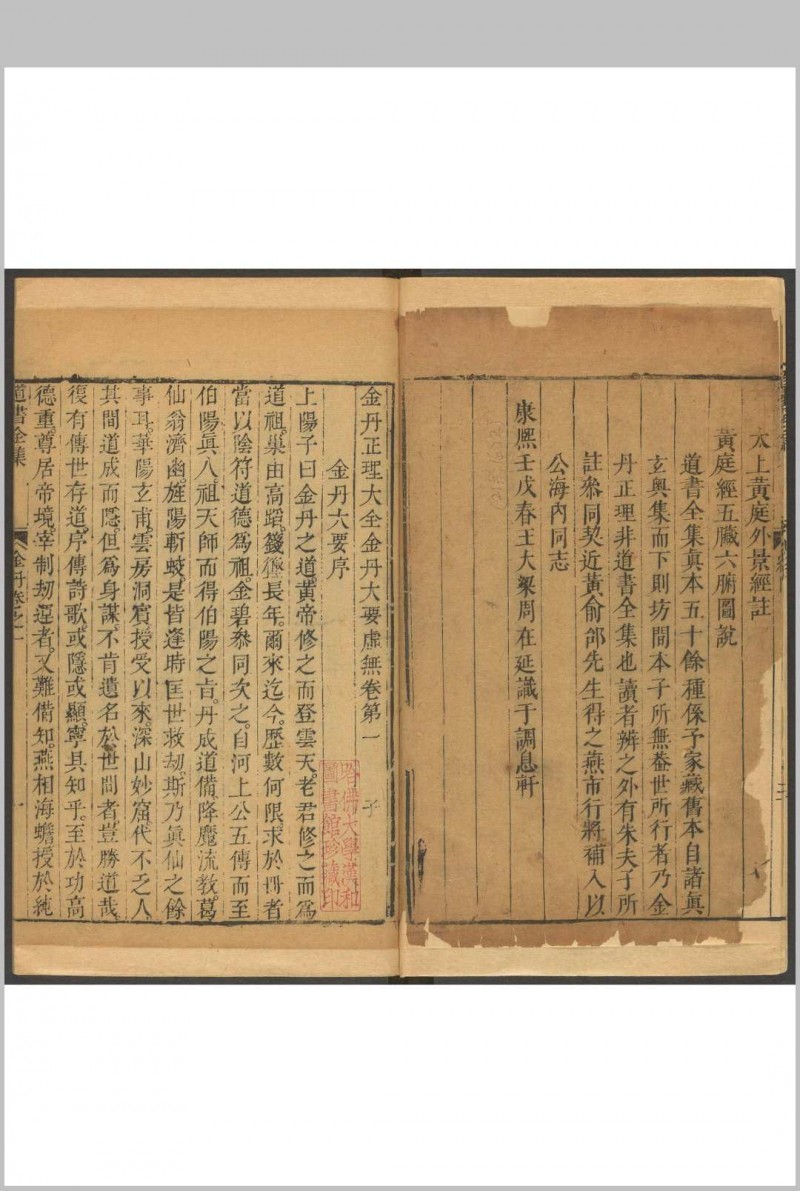 太上黃庭外景經註
黃庭經五臟六腑圖說
道書全集眞本五十餘種係予家藏舊本自諸眞
玄奧集而下則坊間本子所無葢世所行者乃金
丹正理非道書全集也讀者辨之外有朱夫子所
註參同契近黃俞邰先生得之燕市行將補入以
公海內同志
康熙壬戌春王大梁周在延識于調息軒
金丹正理大全金丹大要虛無卷第一
金丹大要序
上陽子曰金丹之道。黃帝修之而登雲天。老君修之而爲
道祖。巢由高蹈。籛鏗長年。爾來迄今。歷數何限。求於冊者
當以陰符道德爲祖。金碧參同次之。自河上公五傳而至
伯陽眞人。祖天師而得伯陽之旨。丹成道備。降魔流教。葛
仙翁濟幽。旌陽斬蛟。是皆逢時匡世救劫。斯乃眞仙之餘
事耳。華陽玄甫。雲房洞賓授受以來。深山妙窟。代不乏人
其間道成而隱。但爲身謀。不肯遺名於世間者。豈勝道哉。
復有傳世存道。序傳詩歌。或隱或顯。寧具知乎。至於功高
德重。尊居帝境。宰制劫運者。又難備知。燕相海蟾授於純
道書全集
金丹卷之一
一
哈佛大學漢和
圖書館珍藏印